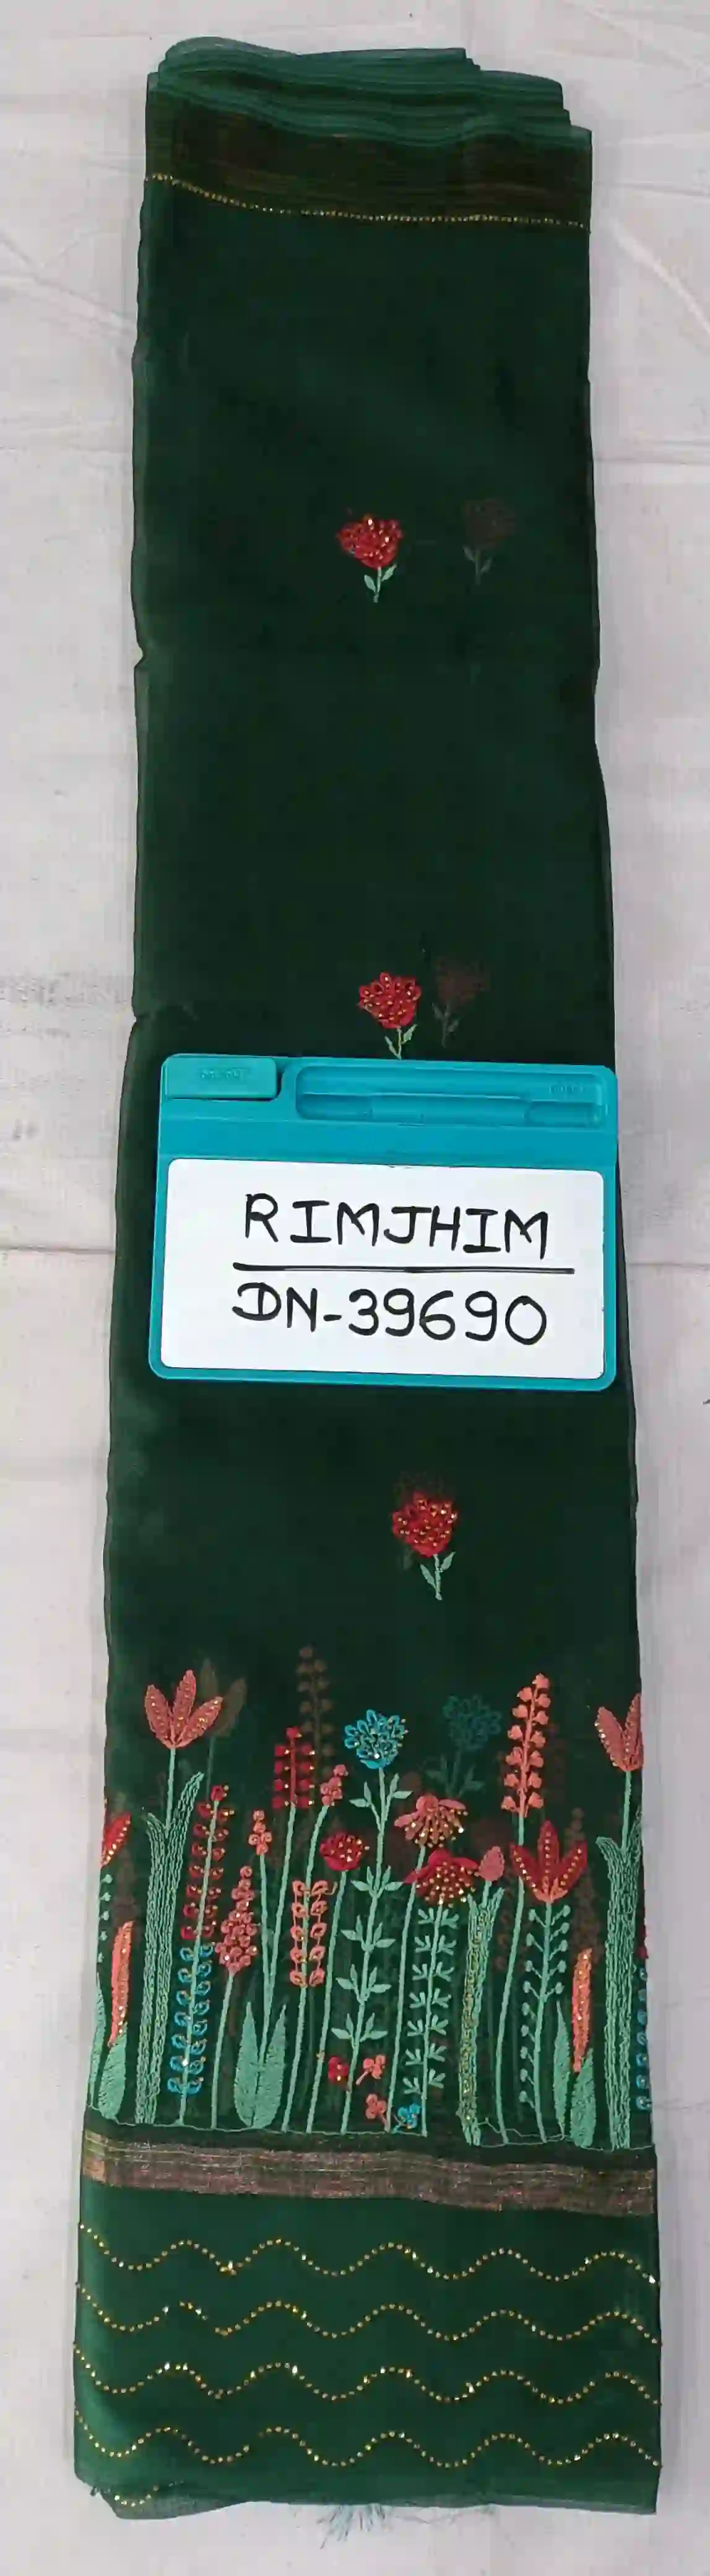 RIMJHIM
DN-39690